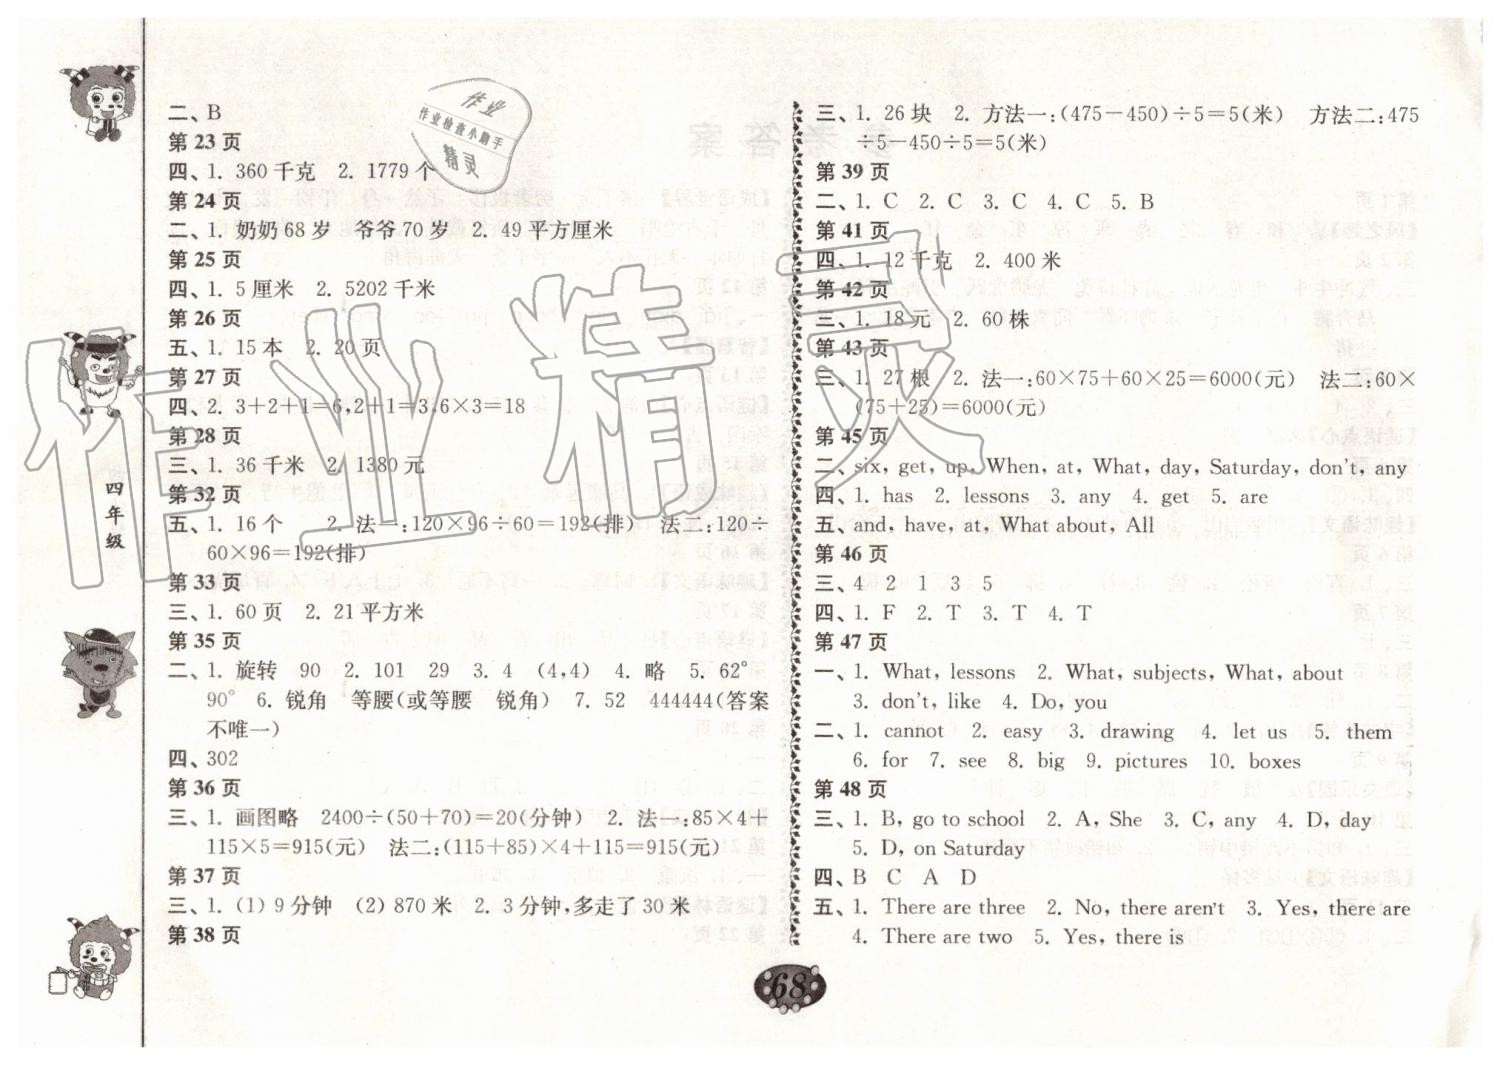 二、B
第 23 页
四、1. 360 千克　2. 1779 个
第 24 页
二、1. 奶奶 68 岁　爷爷 70 岁　2. 49 平方厘米
第 25 页
四、1. 5 厘米　2. 5202 千米
第 26 页
五、1. 15 本　2. 20 页
第 27 页
四、2. 3+2+1=6,2+1=3,6×3=18
第 28 页
三、1. 36 千米　2. 1380 元
第 32 页
五、1. 16 个　2. 法一:120×96÷60=192(排)　法二:120÷
60×96=192(排)
第 33 页
三、1. 60 页　2. 21 平方米
第 35 页
二、1. 旋转　90　2. 101　29　3. 4　(4,4)　4. 略　5. 62°
90°　6. 锐角　等腰(或等腰　锐角)　7. 52　444444(答案
不唯一)
四、302
第 36 页
三、1. 画图略　2400÷(50+70)=20(分钟)　2. 法一:85×4+
115×5=915(元)　法二:(115+85)×4+115=915(元)
第 37 页
三、1. (1) 9 分钟　(2) 870 米　2. 3 分钟,多走了 30 米
第 38 页
三、1. 26 块　2. 方法一:(475-450)÷5=5(米)　方法二:475
÷5-450÷5=5(米)
第 39 页
二、1. C　2. C　3. C　4. C　5. B
第 41 页
四、1. 12 千克　2. 400 米
第 42 页
三、1. 18 元　2. 60 株
第 43 页
三、1. 27 根　2. 法一:60×75+60×25=6000(元)　法二:60×
(75+25)=6000(元)
第 45 页
二、six, get, up, When, at, What, day, Saturday, don't, any
四、1. has　2. lessons　3. any　4. get　5. are
五、and, have, at, What about, All
第 46 页
三、4　2　1　3　5
四、1. F　2. T　3. T　4. T
第 47 页
一、1. What, lessons　2. What, subjects, What, about
3. don't, like　4. Do, you
二、1. cannot　2. easy　3. drawing　4. let us　5. them
6. for　7. see　8. big　9. pictures　10. boxes
第 48 页
三、1. B, go to school　2. A, She　3. C, any　4. D, day
5. D, on Saturday
四、B　C　A　D
五、1. There are three　2. No, there aren't　3. Yes, there are
4. There are two　5. Yes, there is
四年级
68
作业
作业检查小助手
精灵
作业精灵